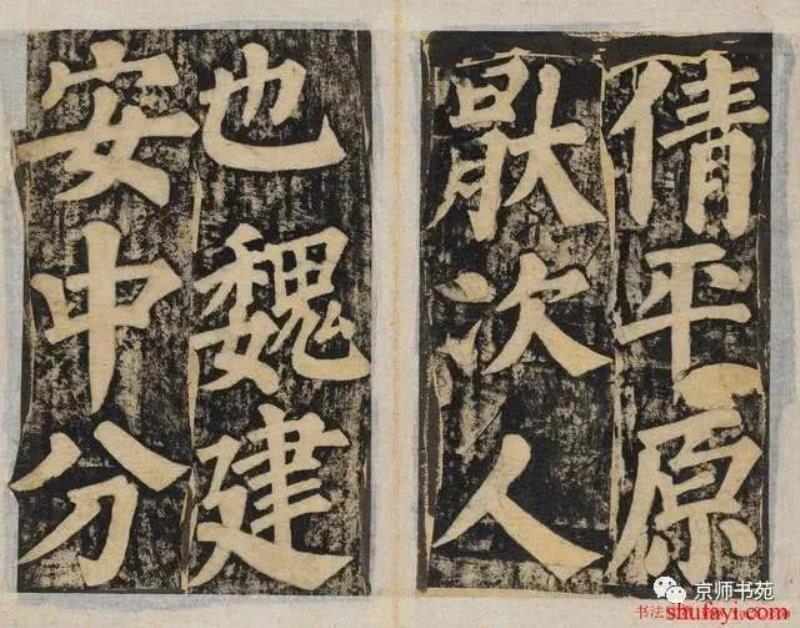 倩平原
猒次人
也魏建
安中分
京师书苑
shufayi.com